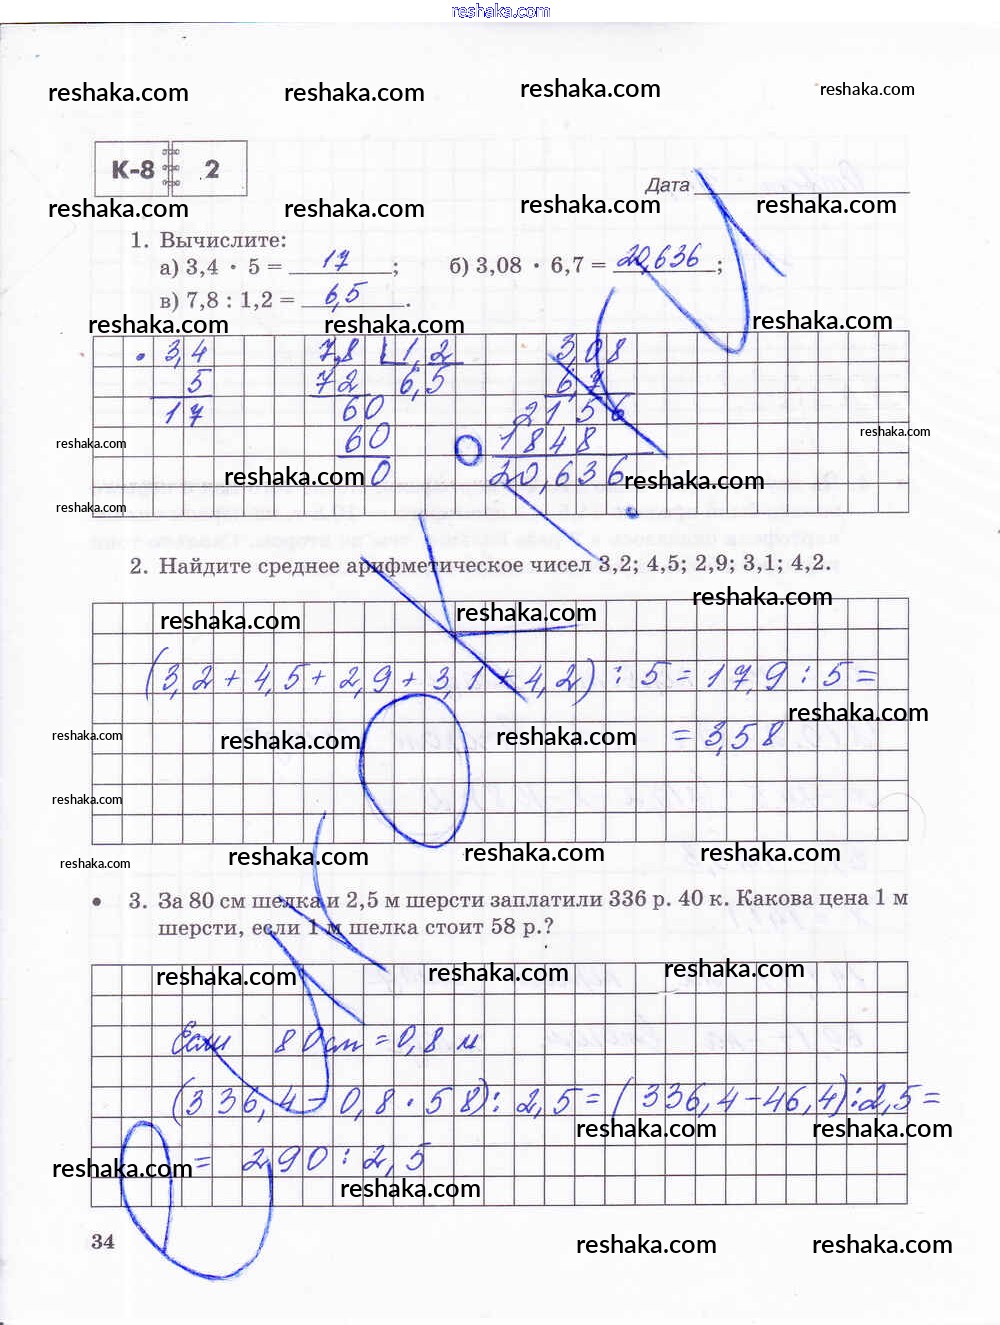 reshaka.com
reshaka.com reshaka.com reshaka.com reshaka.com
К-8 2
Дата
reshaka.com reshaka.com reshaka.com reshaka.com
1. Вычислите:
а) 3,4 · 5 = 17 ; б) 3,08 · 6,7 = 20,636 ;
в) 7,8 : 1,2 = 6,5 .
reshaka.com reshaka.com reshaka.com
· 3,4 7,8 1,2 3,08
5 72 6,5 6,7
17 60 2156
reshaka.com reshaka.com
60 1848
0 20,636
reshaka.com reshaka.com
reshaka.com
2. Найдите среднее арифметическое чисел 3,2; 4,5; 2,9; 3,1; 4,2.
reshaka.com reshaka.com reshaka.com
(3,2 + 4,5 + 2,9 + 3,1 + 4,2) : 5 = 17,9 : 5 =
reshaka.com
= 3,58
reshaka.com reshaka.com reshaka.com
reshaka.com
reshaka.com reshaka.com reshaka.com reshaka.com
• 3. За 80 см шелка и 2,5 м шерсти заплатили 336 р. 40 к. Какова цена 1 м
шерсти, если 1 м шелка стоит 58 р.?
reshaka.com reshaka.com reshaka.com
Если 80 см = 0,8 м
(336,4 - 0,8 · 58) : 2,5 = (336,4 - 46,4) : 2,5 =
reshaka.com reshaka.com
= 290 : 2,5
reshaka.com reshaka.com
34
reshaka.com reshaka.com